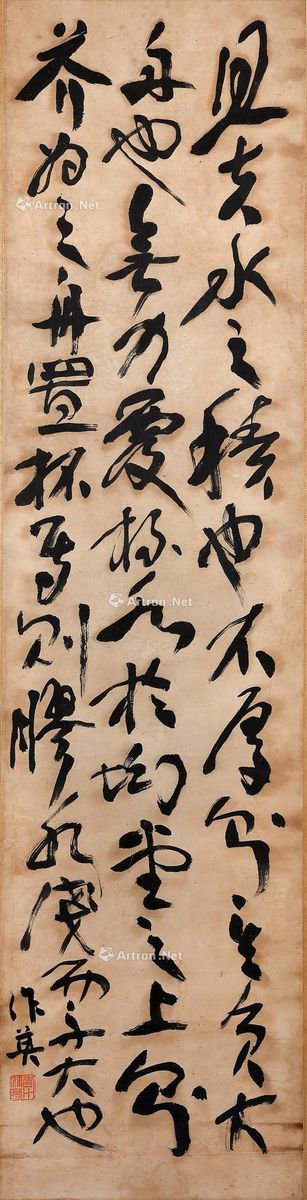 且夫水之積也不厚則其負大
舟也無力覆杯水於坳堂之上則
芥為之舟置杯焉則膠水淺而舟大也
作英
Artron.Net
Artron.Net
Artron.Net
Artron.Net